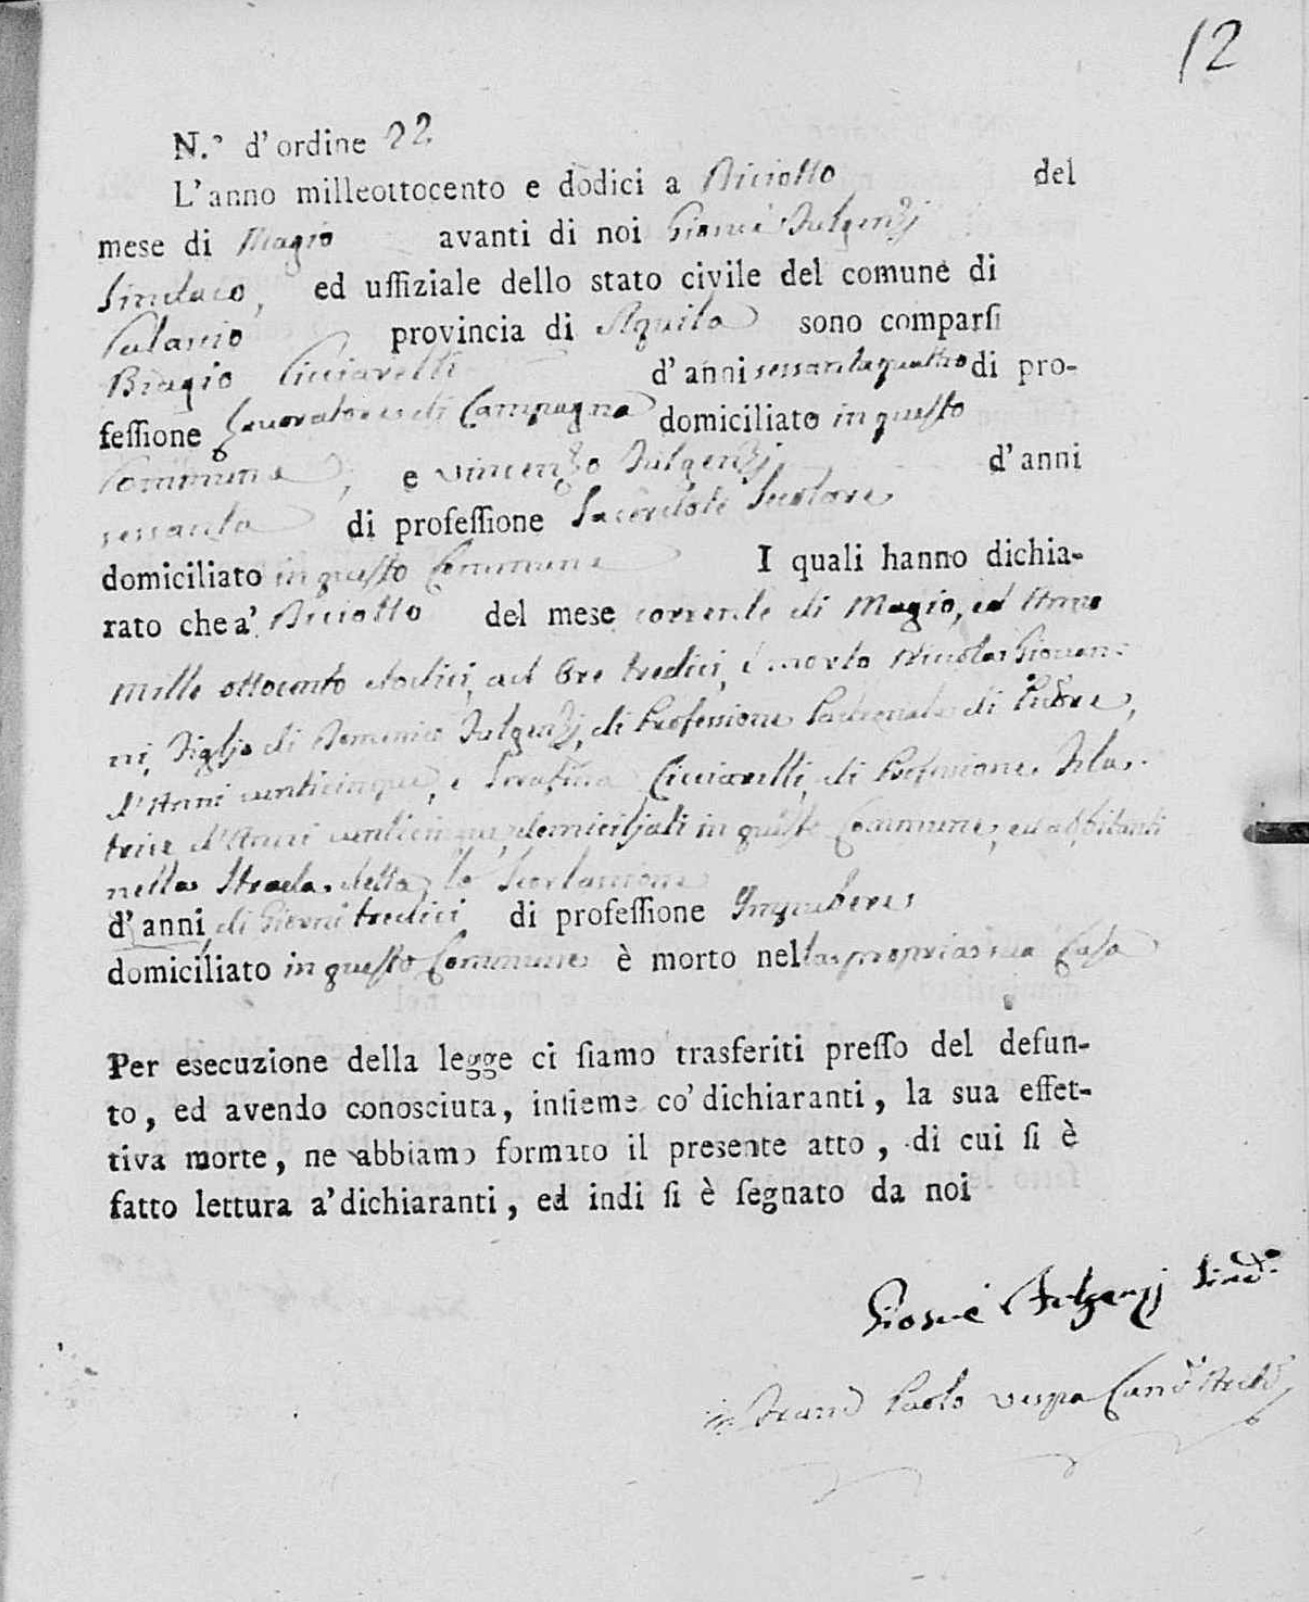 12
N.º d'ordine 22
L'anno milleottocento e dodici a Diciotto del
mese di Magio avanti di noi Giosuè Fulgenzj
Sindaco, ed uffiziale dello stato civile del comune di
provincia di Aquila sono comparsi
Biagio Cicciarelli d'anni sessantaquattro di pro-
fessione Lavoratore di Campagna domiciliato in questo
Commune, e Vincenzo Fulgenzj d'anni
sessanta di professione Sacerdote Secolare
domiciliato in questo Commune I quali hanno dichia-
rato che a' Diciotto del mese corrente di Magio, ed Anno
mille ottocento dodici, ad Ore tredici, è morto Nicola Giovan-
ni, Figlio di Domenico Fulgenzj, di Professione
d'Anni venticinque, e Serafina Cicciarelli, di Professione Fila-
trice d'Anni venticinque, domiciljati in questo Commune, ed abbitanti
nella Strada detta lo
d'anni di Giorni tredici di professione Impubere
domiciliato in questo Commune è morto nella propria sua Casa
Per esecuzione della legge ci siamo trasferiti presso del defun-
to, ed avendo conosciuta, insieme co' dichiaranti, la sua effet-
tiva morte, ne abbiamo formato il presente atto, di cui si è
fatto lettura a' dichiaranti, ed indi si è segnato da noi
Giosuè Fulgenzj Sind.º
Paolo Vespa